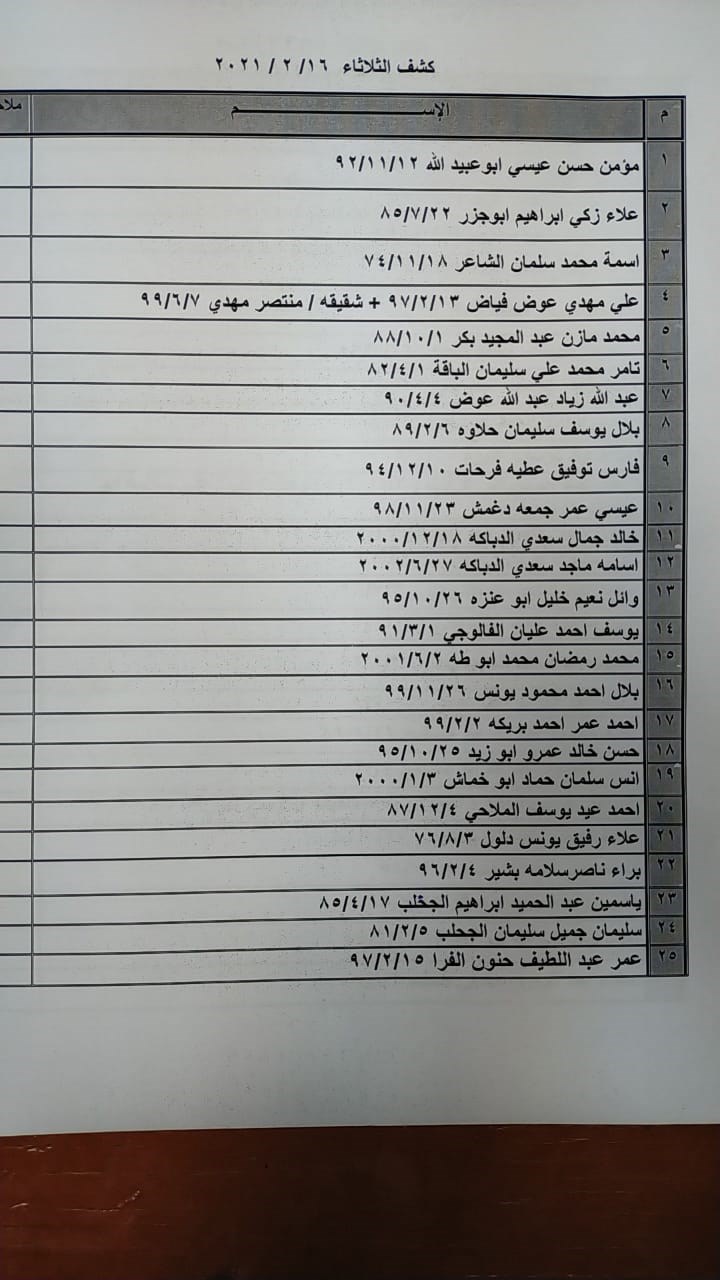 كشف الثلاثاء ١٦/ ٢ / ٢٠٢١
م الإســـــــــــم ملا
١ مؤمن حسن عيسي ابوعبيد الله ٩٢/١١/١٢
٢ علاء زكي ابراهيم ابوجزر ٨٥/٧/٢٢
٣ اسمة محمد سلمان الشاعر ٧٤/١١/١٨
٤ علي مهدي عوض فياض ٩٧/٢/١٣ + شقيقه / منتصر مهدي ٩٩/٦/٧
٥ محمد مازن عبد المجيد بكر ٨٨/١٠/١
٦ تامر محمد علي سليمان الباقة ٨٢/٤/١
٧ عبد الله زياد عبد الله عوض ٩٠/٤/٤
٨ بلال يوسف سليمان حلاوه ٨٩/٢/٦
٩ فارس توفيق عطيه فرحات ٩٤/١٢/١٠
١٠ عيسي عمر جمعه دغمش ٩٨/١١/٢٣
١١ خالد جمال سعدي الدباكه ٢٠٠٠/١٢/١٨
١٢ اسامه ماجد سعدي الدباكه ٢٠٠٢/٦/٢٧
١٣ وائل نعيم خليل ابو عنزه ٩٥/١٠/٢٦
١٤ يوسف احمد عليان الفالوجي ٩١/٣/١
١٥ محمد رمضان محمد ابو طه ٢٠٠١/٦/٢
١٦ بلال احمد محمود يونس ٩٩/١١/٢٦
١٧ احمد عمر احمد بريكه ٩٩/٢/٢
١٨ حسن خالد عمرو ابو زيد ٩٥/١٠/٢٥
١٩ انس سلمان حماد ابو خماش ٢٠٠٠/١/٣
٢٠ احمد عيد يوسف الملاحي ٨٧/١٢/٤
٢١ علاء رفيق يونس دلول ٧٦/٨/٣
٢٢ براء ناصرسلامه بشير ٩٦/٢/٤
٢٣ ياسمين عبد الحميد ابراهيم الجخلب ٨٥/٤/١٧
٢٤ سليمان جميل سليمان الجحلب ٨١/٢/٥
٢٥ عمر عبد اللطيف حنون الفرا ٩٧/٢/١٥